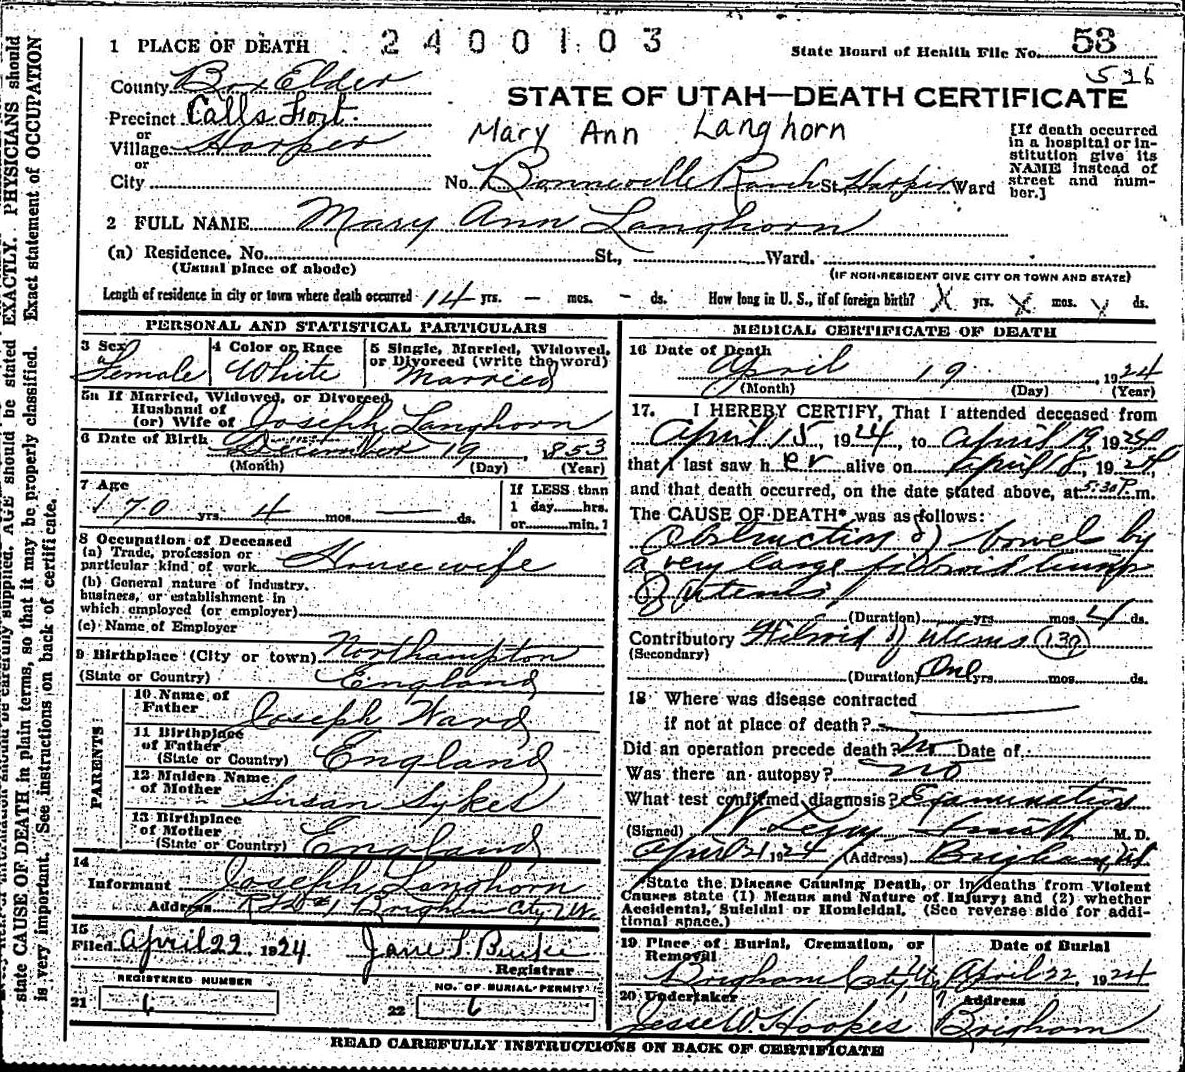 1 PLACE OF DEATH
2400103
State Board of Health File No. 53
526
County Box Elder
STATE OF UTAH—DEATH CERTIFICATE
Precinct Calls Fort.
or
Village Harper
or
City
Mary Ann Langhorn
[If death occurred
in a hospital or in-
stitution give its
NAME instead of
street and num-
ber.]
No. Bonneville Ranch St. Harper Ward
2 FULL NAME Mary Ann Langhorn
(a) Residence. No. St., Ward.
(Usual place of abode)
(IF NON-RESIDENT GIVE CITY OR TOWN AND STATE)
Length of residence in city or town where death occurred 14 yrs. — mos. – ds. How long in U. S., if of foreign birth? X yrs. X mos. ds.
PERSONAL AND STATISTICAL PARTICULARS
3 Sex
Female
4 Color or Race
White
5 Single, Married, Widowed,
or Divorced (write the word)
Married
5a If Married, Widowed, or Divorced
Husband of
(or) Wife of Joseph Langhorn
6 Date of Birth December 19, 1853
(Month) (Day) (Year)
7 Age
70 yrs. 4 mos. — ds.
If LESS than
1 day hrs.
or min.?
8 Occupation of Deceased
(a) Trade, profession or
particular kind of work Housewife
(b) General nature of industry,
business, or establishment in
which employed (or employer)
(c) Name of Employer
9 Birthplace (City or town) Northampton
(State or Country) England
PARENTS
10 Name of
Father Joseph Ward
11 Birthplace
of Father
(State or Country) England
12 Maiden Name
of Mother Susan Sykes
13 Birthplace
of Mother
(State or Country) England
14
Informant Joseph Langhorn
Address R.F.D #1 Brigham City
15
Filed April 22, 1924 Jane S. Burke
Registrar
REGISTERED NUMBER
21 6
NO. OF BURIAL PERMIT
22 6
MEDICAL CERTIFICATE OF DEATH
16 Date of Death
April 19, 1924
(Month) (Day) (Year)
17. I HEREBY CERTIFY, That I attended deceased from
April 15, 1924, to April 19, 1924
that I last saw her alive on April 18, 1924
and that death occurred, on the date stated above, at 5:30 P. m.
The CAUSE OF DEATH* was as follows:
Obstruction of bowel by
a very large fibroid
of Uterus
(Duration) yrs. mos. 4 ds.
Contributory Fibroid of uterus 139
(Secondary)
(Duration) One yrs. mos. ds.
18 Where was disease contracted
if not at place of death?
Did an operation precede death? no Date of
Was there an autopsy? no
What test confirmed diagnosis? Examination
(Signed) W Leroy Smith M. D.
April 21 1924 (Address) Brigham, Ut.
State the Disease Causing Death, or in deaths from Violent
Causes state (1) Means and Nature of Injury; and (2) whether
Accidental, Suicidal or Homicidal. (See reverse side for addi-
tional space.)
19 Place of Burial, Cremation, or
Removal
Brigham City Ut.
Date of Burial
April 22, 1924
20 Undertaker
Jesse W Hookes
Address
Brigham
READ CAREFULLY INSTRUCTIONS ON BACK OF CERTIFICATE
should be carefully supplied. AGE should be stated EXACTLY. PHYSICIANS should
state CAUSE OF DEATH in plain terms, so that it may be properly classified. Exact statement of OCCUPATION
is very important. See instructions on back of certificate.